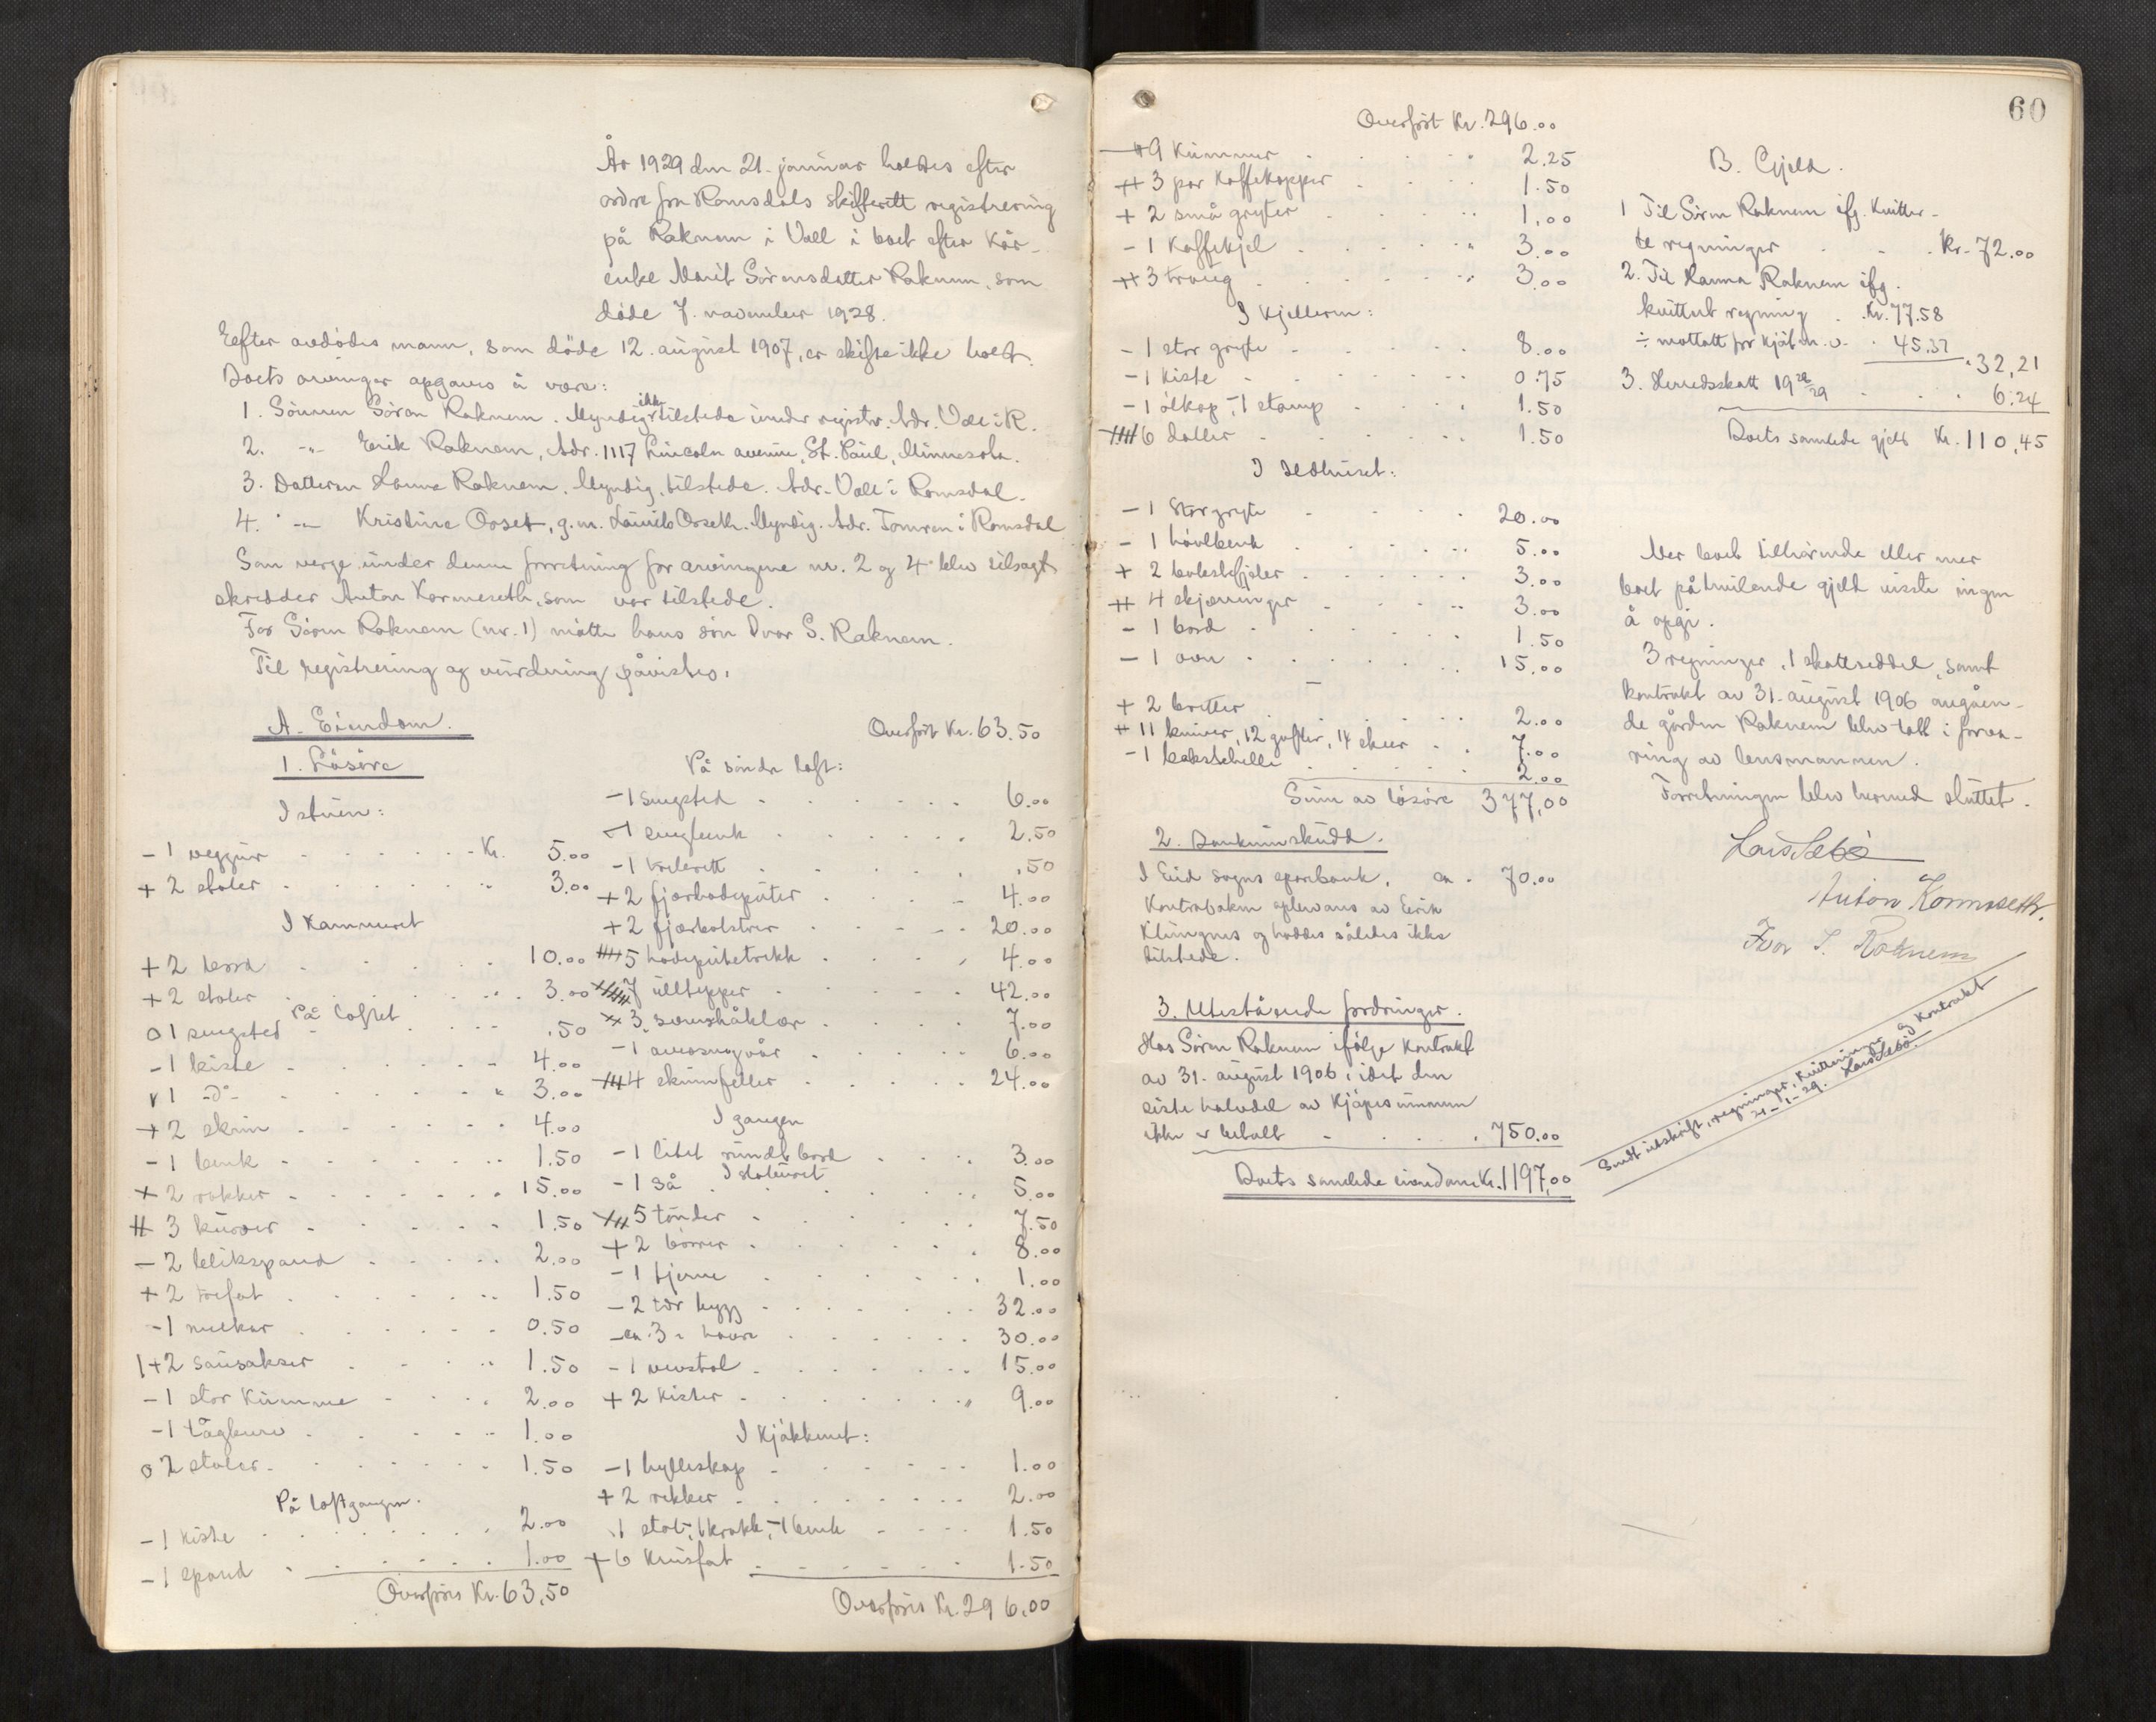 År 1929 den 21. januar holdtes efter
ordre fra Romsdals skifterett registrering
på Raknem i Voll i boet efter Kår-
enke Marit Sörensdatter Raknem, som
döde 7. november 1928.
Efter avdödes mann, som döde 12. august 1907, er skifte ikke holdt.
Boets arvinger opgaves å være:
1. Sönnen Sören Raknem. Myndig, ikke tilstede under registr. Adr. Voll i R.
2. -"- Erik Raknem, Adr. 1117 Lincoln avenue, St. Paul, Minnesota.
3. Datteren Hanna Raknem. Myndig, tilstede. Adr. Voll i Romsdal.
4. -"- Kristine Orset, g.m. Laurits Orseth. Myndig. Adr. Tomren i Romsdal
Som verge under denne forretning for arvingene nr. 2 og 4 blev tilsagt
skredder Anton Kormeseth, som var tilstede.
For Sören Raknem (nr. 1) mötte hans sön Ivar S. Raknem.
Til registrering og vurdering påvistes:
A. Eiendom.
1. Lösöre
I stuen:
- 1 veggur Kr. 5.00
+ 2 stoler " 3.00
I Kammeret
+ 2 bord 10.00
+ 2 stoler 3.00
På loftet
o 1 sengsted .50
- 1 kiste 4.00
v 1 -d°- " 3.00
+ 2 skrin 4.00
- 1 benk 1.50
+ 2 rokker 15.00
# 3 kurver 1.50
- 2 blikspand 2.00
+ 2 trefat 1.50
- 1 melkar 0.50
1+2 sausakser 1.50
- 1 stor Kumme 2.00
- 1 tågkurv 1.00
o 2 stoler 1.50
På loftgangen.
- 1 kiste 2.00
- 1 spand 1.00
Overföres Kr. 63,50
Overfört Kr. 63.50
På söndre loft:
- 1 sengsted 6.00
- 1 sengbenk 2.50
- 1 .50
+ 2 fjærhodeputer 4.00
+ 2 fjærbolstrer 20.00
5 hodeputetrekk 4.00
7 ulltepper 42.00
3 7.00
- 1 6.00
4 skinnfeller 24.00
I gangen
- 1 litet rundt bord 3.00
I stabburet
- 1 så 5.00
5 tönder 7.50
+ 2 börrer 8.00
- 1 kjerne 1.00
- 2 tdr bygg 32.00
- ca. 3 " havre 30.00
- 1 vevstol 15.00
+ 2 kister " 9.00
I Kjökkenet:
- 1 hylleskap 1.00
+ 2 rekker 2.00
1 stol, 1 krakk, - 1 benk 1.50
+ 6 Krusfat 1.50
Overföres Kr. 296.00
60
Overfört Kr. 296.00
9 Kummer 2.25
3 par Kaffekopper 1.50
+ 2 små gryter 1.00
- 1 Kaffekjel 3.00
3 traug 3.00
I Kjelleren:
- 1 stor gryte 8.00
- 1 kiste 0.75
- 1 ölkop, - 1 stamp 1.50
6 daller 1.50
I Ildhuset:
- 1 Stor gryte 20.00
- 1 hövlbenk 5.00
+ 2 bakstefjöler 3.00
4 skjæringer 3.00
- 1 bord 1.50
- 1 ovn 15.00
+ 2 bretter 2.00
11 kniver, 12 gafler, 14 skeer 7.00
- 1 bakstehelle 2.00
Sum av lösöre 377,00
2. Bankinnskudd.
I Eid sogns sparebank, ca. 70.00
Kontraboken oplevares av Eirik
Klungnes og haddes således ikke
tilstede.
3. Utestående fordringer.
Hos Sören Raknem ifölge Kontrakt
av 31. august 1906, idet den
siste halvdel av Kjöpesummen
ikke er betalt 750.00
Boets samlede eiendom Kr. 1197,00
B. Gjeld.
1 Til Sören Raknem ifg. Kvitter-
te regninger Kr. 72.00
2. Til Hanna Raknem ifg.
kvittert regning Kr. 77.58
÷ mottatt for kjöt m.v. 45.37
32,21
3. Herredsskatt 1928/29 6.24
Boets samlede gjeld Kr. 110,45
Mer boet tilhörende eller mer
boet påhvilende gjeld visste ingen
å opgi.
3 regninger, 1 skatteseddel, samt
kontrakt av 31. august 1906 angåen-
de gården Raknem blev tatt i forva-
ring av lensmannen.
Forretningen blev hermed sluttet.
Lars Sebö
Anton Kormeseth.
Ivar S. Raknem
Sendt utskrift, regninger, kvitteringer og Kontrakt
21-1-29. Lars Sebö.